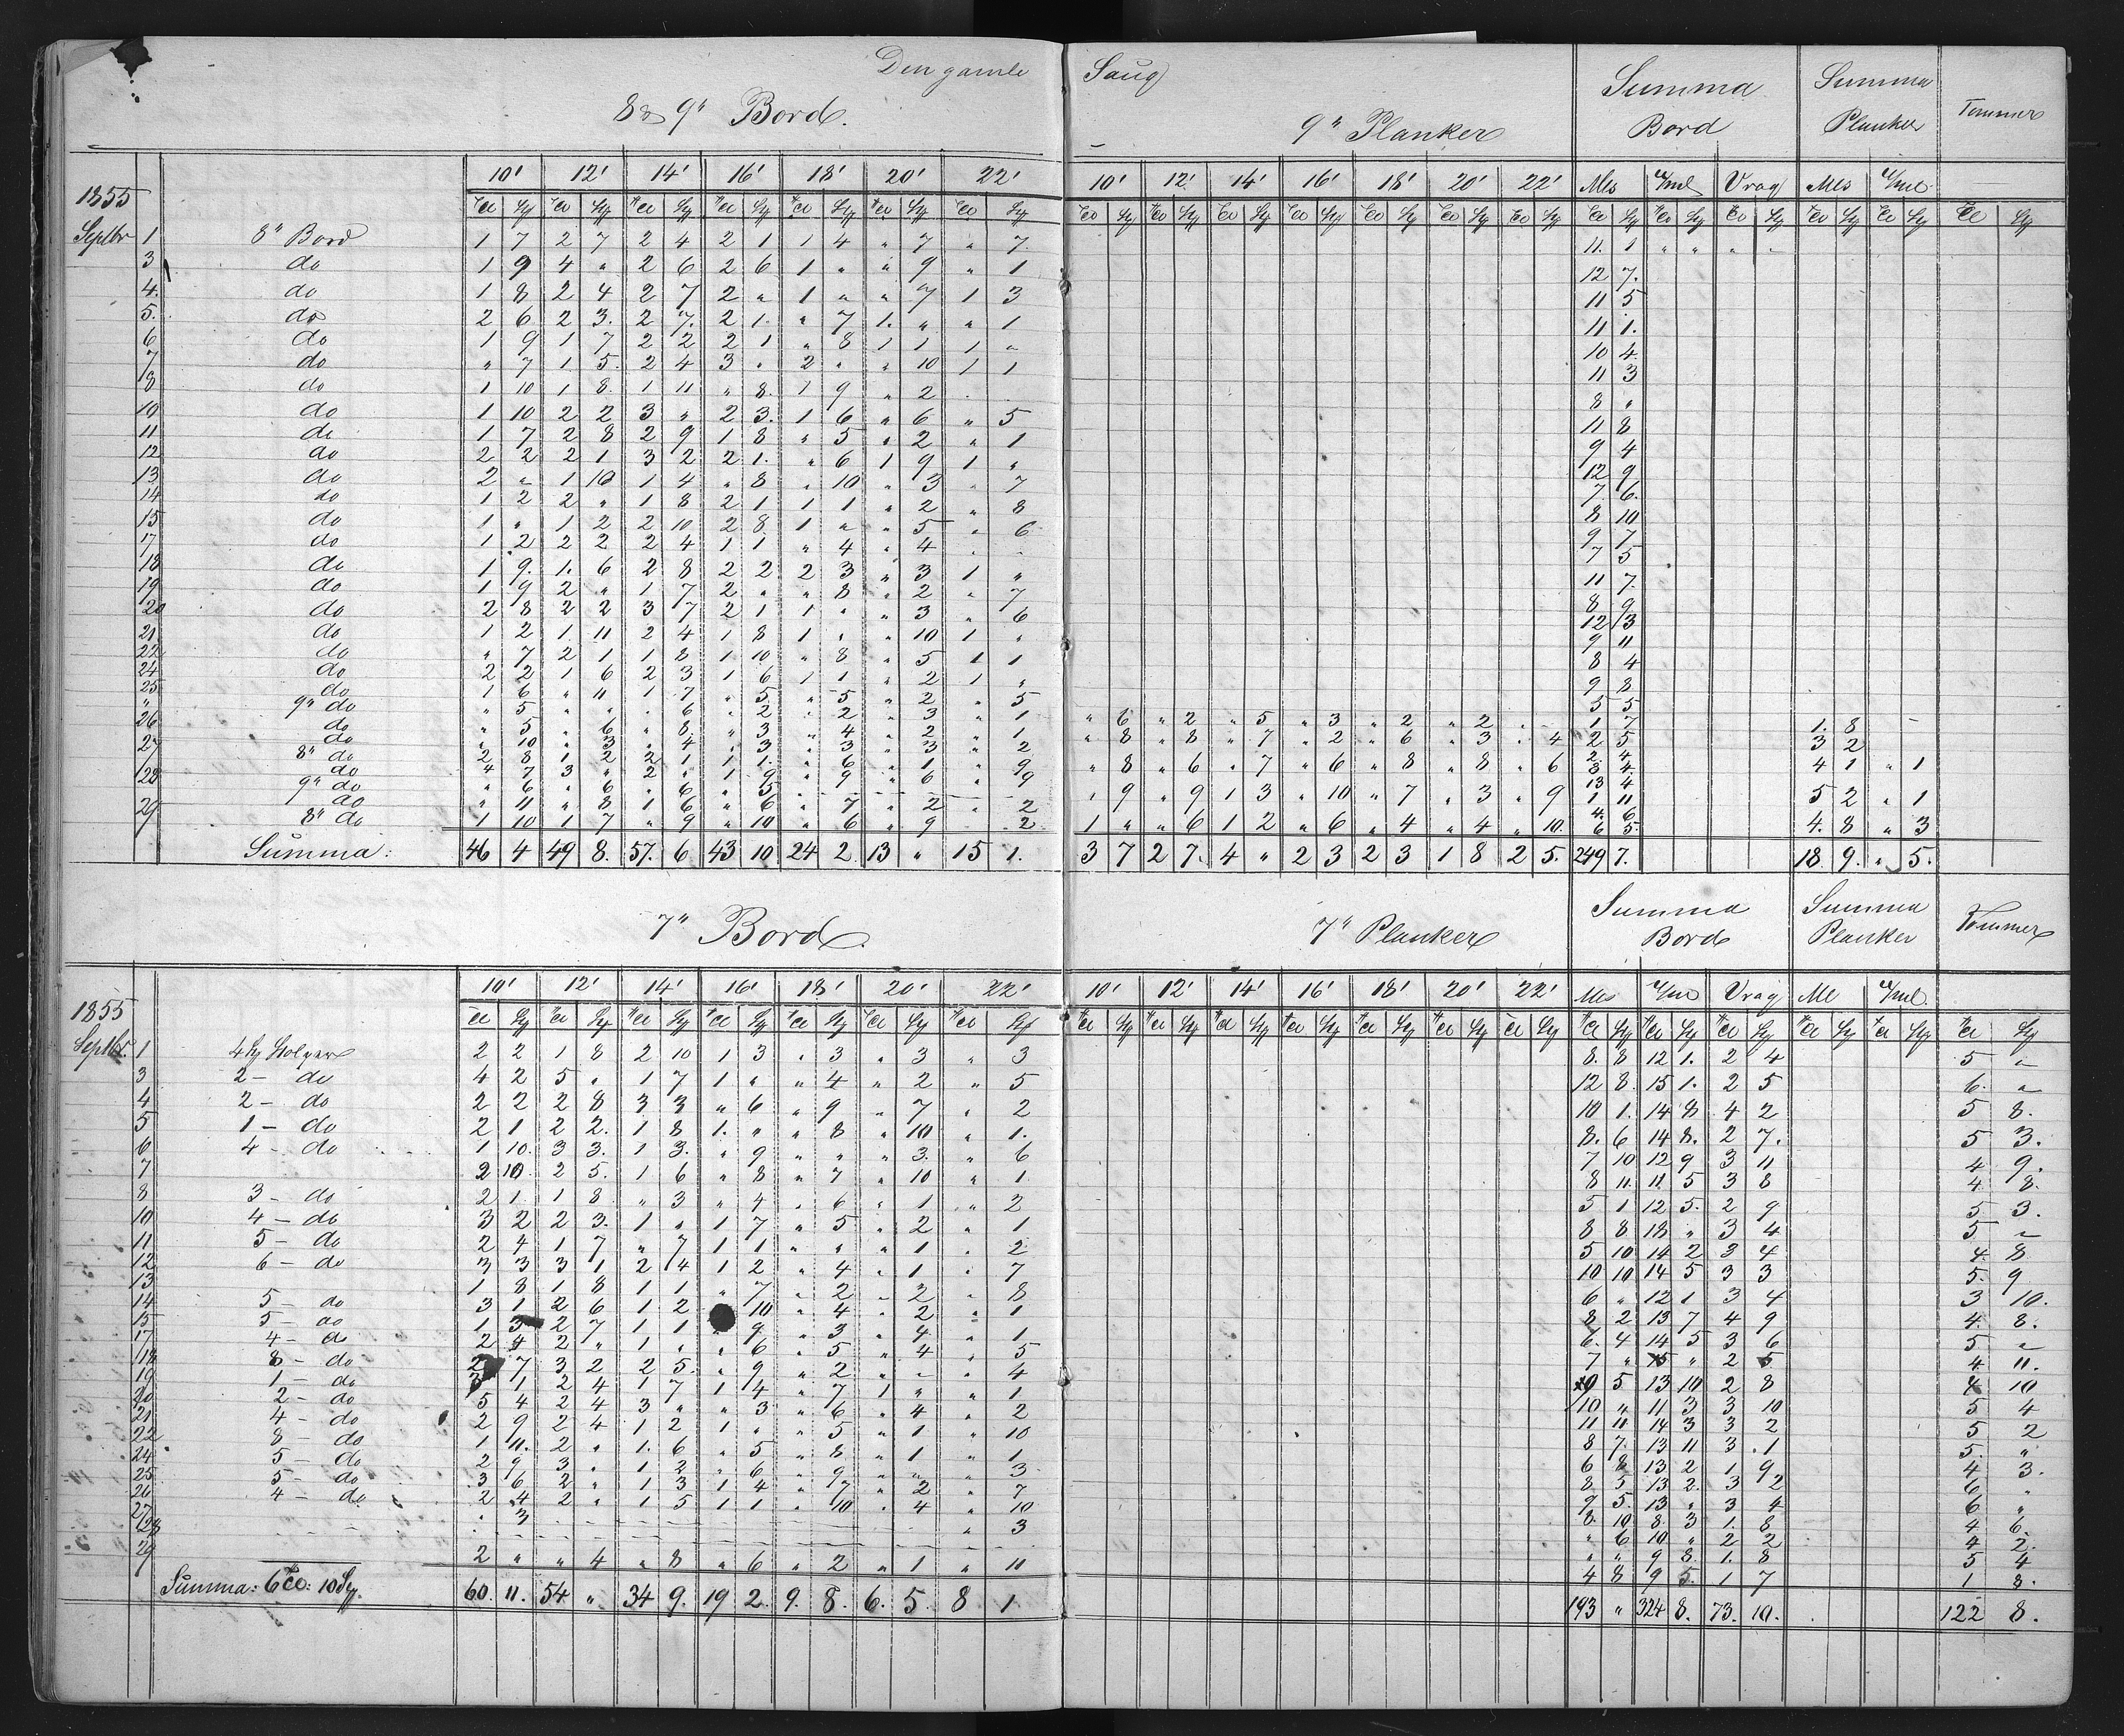 Den gamle Saug
8 & 9" Bord. 9" Planker Summa Bord Summa Planker Tømmer
10' 12' 14' 16' 18' 20' 22' 10' 12' 14' 16' 18' 20' 22' Mls U/ml Vrag Mls U/ml
1855
Septbr 1 8" Bord 1 7 2 7 2 4 2 1 1 4 " 7 " 7. 11. 1 " " " "
3 do 1 9 4 " 2 6 2 6 1 " " 9 " 1 12 7.
4. do 1 8 2 4 2 7 2 " 1 " " 7 1 3 11 5
5. do 2 6 2 3. 2 7. 2 1. " 7 1. " " 1 11 1.
6 do 1 9 1 7 2 2 2 1 " 8 1 1 1 " 10 4.
7 do " 7 1 5. 2 4 3 " 2 " " 10 1 1 11 3
8 do 1 10 1 8. 1 11 " 8. 1 9 " 2 . . 8 "
10 do 1 10 2 2 3 " 2 3. 1 6 " 6 " 5 11 8
11 do 1 7 2 8 2 9 1 8 " 5 " 2 " 1 9 4
12 do 2 2 2 1 3 2 2 1. " 6 1 9 1 " 12 9
13 do 2 " 1 10 1 4 " 8 " 10 " 3 " 7 7 6.
14 do 1 2 2 " 1 8 2 1 1 1 " 2 " 8 8 10
15 do 1 " 1 2 2 10 2 8 1 " " 5 " 6 9 7
17 do 1 2 2 2 2 4 1 1 " 4 " 4 . . 7 5
18 do 1 9. 1. 6 2 8 2 2 2 3 " 3 1 " 11 7.
19 do 1 9 2 " 1 7 2 " " 8 " 2 " 7 8 9
20 do 2 8 2 2 3 7 2 1 1 " " 3 " 6 12 3
21. do 1 2 1. 11 2 4 1 8 1 " " 10 1 " 9 11
22 do " 7 2 1 1 8 1 10 " 8 " 5 1 1 8 4
24 do 2 2 1 6 2 3 1 6 1 1 " 2 1 " 9 8
25 do 1 6 " 11 1 7 " 5 " 5 " 2 " 5 5 5
" 9" do " 5 " " " 6 " 2 " 2 " 3 " 1 " 6 " 2 " 5 " 3 " 2 " 2 " " 1 7 1. 8 –
26 do " 5 " 6 " 8 " 3 " 4 " 2 " 1 " 8 " 8 " 7 " 2 " 6 " 3 " 4 2 5 3 2
27 do " 10 " 3 " 4 " 3 " 3 " 3 " 2 " 8 " 6 " 7 " 6 " 8 " 8 " 6 2. 4 4 1 " 1
8" do 2 8 1 2 2 1 1 1. " 6 " 1 " 9 8 4
do 4 7 3 " 2 " 1 9 " 9 " 6 " 9 13 4
28 9" do " 6 " 6 " 6 " 5 " 9 " 9 1 3 " 10 " 7 " 3 " 9 1 11 5 2 " 1
29 do " 11 " 8 1 6 " 6 " 7 " 2 " 2 1 " " 6 1 2 " 6 " 4 " 4 " 10. 4. 6 4. 8 " 3
8" do 1 10 1 7 " 9 " 10 " 6 " 9 . 2 6 5.
Summa: 46 4 49 8. 57. 6 43 10 24 2 13 " 15 1. 3 7 2 7. 4 " 2 3 2 3 1 8 2 5. 249 7. 18. 9. " 5.
7" Bord 7" Planker Summa Bord Summa Planker Tømmer
10' 12' 14' 16' 18' 20' 22' 10' 12' 14' 16' 18' 20' 22' Mls U/ml Vrag Ml U/ml
1855
Septbr. 1 2 2 1 8 2 10 1 3 " 3 " 3 " 3 8. 8 12 1. 2 4 5 "
3 2 – do 4 2 5 " 1 7 1 " " 4 " 2 " 5 12 8. 15 1. 2 5 6. "
4 2 – do 2 2 2 8 3 3 " 6 " 9 " 7 " 2 10 1. 14 8 4 2 5 8.
5 1 – do 2 1 2 2. 1 8 1. " " 8 " 10 " 1. 8. 6 14 8. 2 7. 5 3.
6 4 – do 1 10. 3 3. 1 3. " 9 " " " 3. " 6 7 10 12 9 3 11 4 9.
7 2 10. 2 5. 1 6 " 8 " 7 " 10 " 1 8 11. 11. 5 3 8 4 8.
8 3 – do 2 1. 1 8 " 3 " 4 " 6 " 1 " 2 5 1 12 5. 2 9 5 3.
10 4 – do 3 2 2 3. 1 " 1 7 " 5 " 2 " 1 8 8 18 " 3 4 5 "
11 5 – do 2 4 1 7 " 7 1 1 " " " 1 " 2 5 10 14 2 3 4 4. 8
12 6 – do 3 3 3 1 2 4 1 2 " 4 " 1 " 7 10 10 14 5 3 3 5. 9
13 1 8 1 8 1 1 " 7 " 2 " 2 " 8 6 " 12 1 3 4 3 10.
14 5 – do 3 1 2 6 1. 2 10 " 4 " 2 " 1 8 2 13 7 4 9 4. 8.
15 5 – do 1 3 2 7 1 1 " 9 " 3 " 4 " 1 6. 4 14 5 3 6 5 "
17 4 – do 2 4 2 " 1 " " 6 " 5 " 4 " 5 7 " 15 " 2 5 4 11.
18 8 – do 2 7 3 2 2 5. " 9 " 2 " " " 4 10 5 13 10 2 8 4 10
19 1 – do 3 1 2 4 1 7 1 4 " 7 1 " " 1 10 " 11 3 3 10 5 4
20 2 – do 5 4 2 4 3 " " 3 " 6 " 4 " 2 11 11 14 3 3 2 5 2
21 4 – do 2 9 2 4 1 2 1 " " 5 " 1 " 10 8 7. 13 11 3 1 5. "
22 8 – do 1 11. 2 " 1. 6 " 5 " 8 " 1 " 1 6 8 13 2 1 9 4 3.
24 5 – do 2 9 3 " 1 2 " 6 " 9 " " " 3 8 5 13 2. 3 2 6 "
25 5 – do 3 6 2 " 1 3 1 4 " 7 " 2 " 7 9 5. 13 " 3 4 6 "
26 4 – do 2 4 2 " 1 5 1 1 " 10 " 4 " 10 8. 10 8. 3 1. 8 4 6.
27 " 3 " 6 10 " 2 2 4 2.
28 " 3 " " 9 8. 1. 8 5 4
29 2 " " 4 " 8 " 6 " 2 " 1 " 11 4 8 9 5. 1 7 1 8.
Summa: 6 10 60. 11. 54 " 34 9. 19 2. 9. 8. 6. 5. 8 1. 193 " 324 8. 73. 10. 122 8.